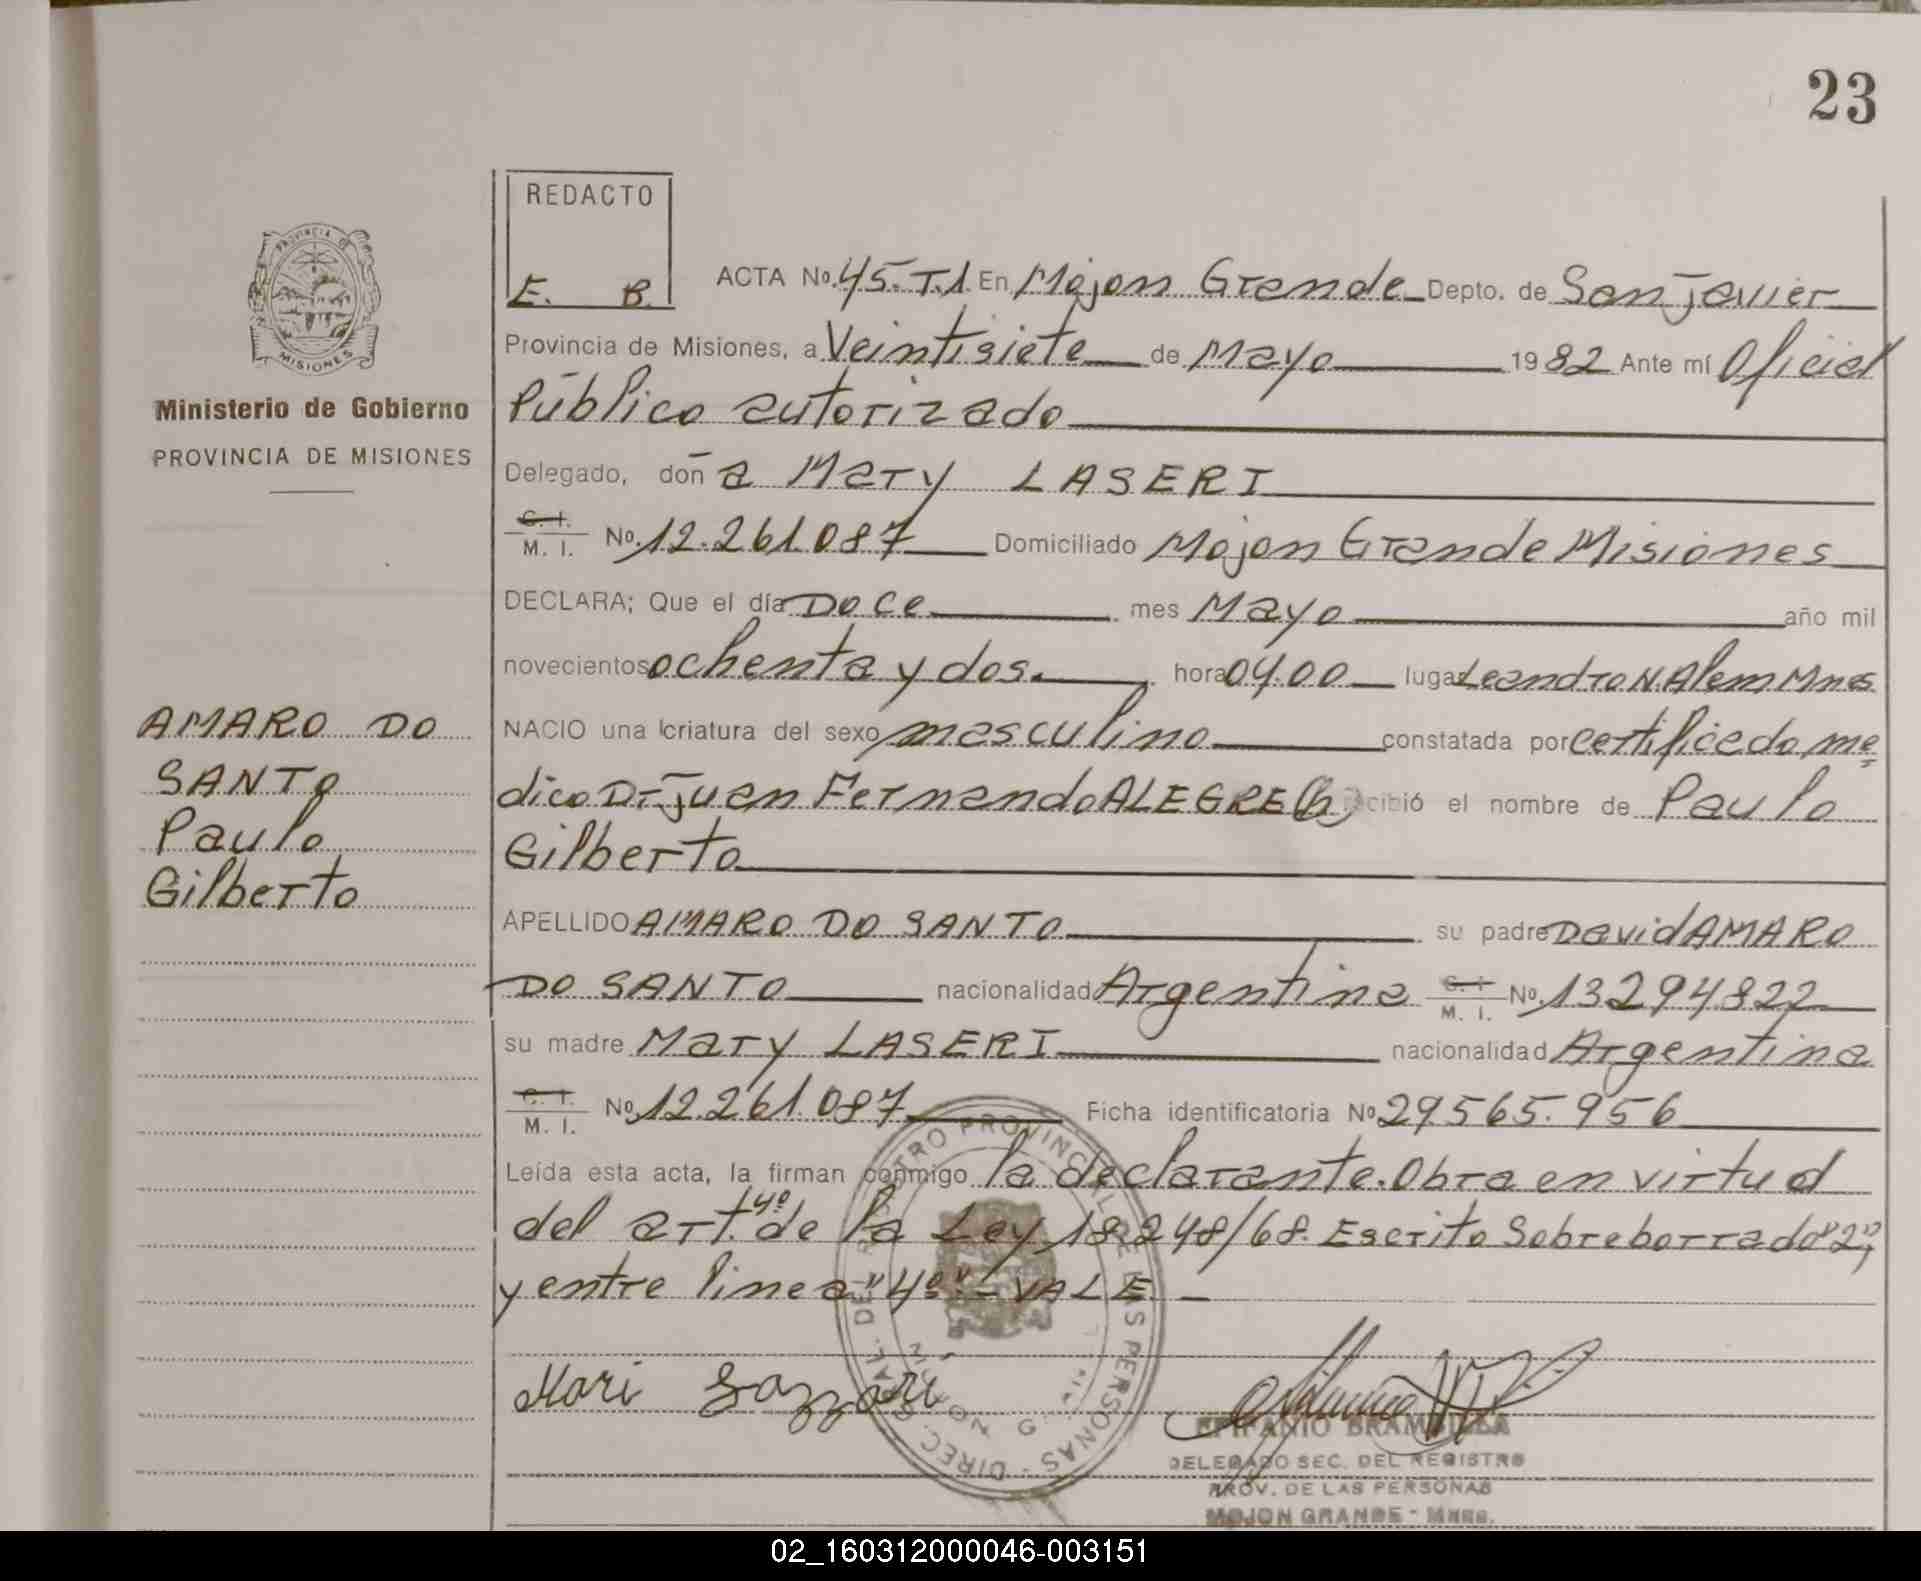 23
REDACTO
E. B.
PROVINCIA DE
MISIONES
Ministerio de Gobierno
PROVINCIA DE MISIONES
AMARO DO
SANTO
Paulo
Gilberto
ACTA No. 45. T.1 En Mojon Grande Depto. de San Javier
Provincia de Misiones, a Veintisiete de Mayo 1982 Ante mí Oficial
Público autorizado
Delegado, don a Mary LASERI
C. I. M. I. No. 12.261.087 Domiciliado Mojon Grande Misiones
DECLARA; Que el día DOCE mes Mayo año mil
novecientos ochenta y dos. hora 04.00 lugar Leandro N. Alem Mnes
NACIO una criatura del sexo masculino constatada por certificado me
dico Dr. Juan Fernando ALEGRE (h) recibió el nombre de Paulo
Gilberto
APELLIDO AMARO DO SANTO su padre David AMARO
DO SANTO nacionalidad Argentina C. I. M. I. No. 13294822
su madre Mary LASERI nacionalidad Argentina
C. I. M. I. No. 12.261.087 Ficha identificatoria No 29.565.956
Leída esta acta, la firman conmigo la declarante. Obra en virtud
del art. 4º de la Ley 18.248/68. Escrito Sobreborrado "2",
y entre linea "4º" - VALE. -
Mari Lazzari
EPIFANIO BRAMBILLA
DELEGADO SEC. DEL REGISTRO
PROV. DE LAS PERSONAS
MOJON GRANDE - Mnes.
DIREC. GRAL. DEL REGISTRO PROVINCIAL DE LAS PERSONAS
02_160312000046-003151